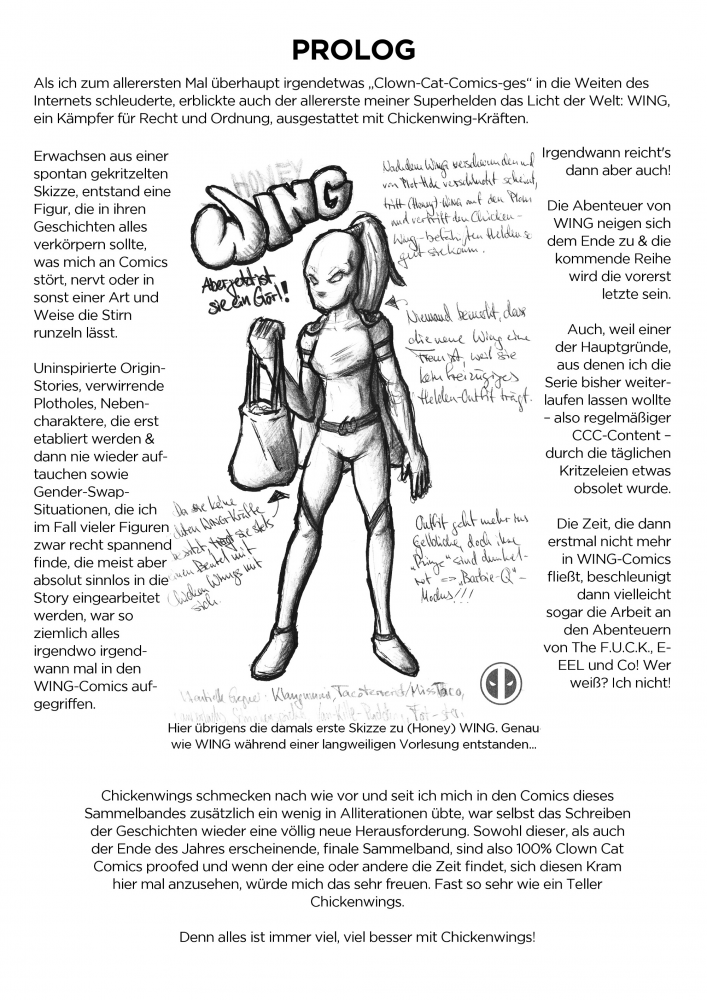 PROLOG
Als ich zum allerersten Mal überhaupt irgendetwas „Clown-Cat-Comics-ges“ in die Weiten des
Internets schleuderte, erblickte auch der allererste meiner Superhelden das Licht der Welt: WING,
ein Kämpfer für Recht und Ordnung, ausgestattet mit Chickenwing-Kräften.
Erwachsen aus einer
spontan gekritzelten
Skizze, entstand eine
Figur, die in ihren
Geschichten alles
verkörpern sollte,
was mich an Comics
stört, nervt oder in
sonst einer Art und
Weise die Stirn
runzeln lässt.
Uninspirierte Origin-
Stories, verwirrende
Plotholes, Neben-
charaktere, die erst
etabliert werden &
dann nie wieder auf-
tauchen sowie
Gender-Swap-
Situationen, die ich
im Fall vieler Figuren
zwar recht spannend
finde, die meist aber
absolut sinnlos in die
Story eingearbeitet
werden, war so
ziemlich alles
irgendwo irgend-
wann mal in den
WING-Comics auf-
gegriffen.
HONEY
WING
Aber jetzt ist
sie ein Görl!
Nachdem Wing verschwunden und
von Plothole verschluckt scheint,
tritt (Honey)-Wing auf den Plan
und vertritt den Chicken-
Wing-
gut sie kann.
Niemand bemerkt, dass
die neue Wing eine
Frau ist, weil sie
kein freizügiges
Helden-Outfit trägt.
Da sie keine
Wing-Kräfte
besitzt, trägt sie stets
einen Beutel mit
Chicken Wings mit
sich.
Outfit geht mehr ins
Gelbliche, doch ihre
"Ringe" sind dunkel-
rot => "Barbie-Q"-
Modus!!!
Klangwand, Tacoterrorist/MissTaco,
Irgendwann reicht's
dann aber auch!
Die Abenteuer von
WING neigen sich
dem Ende zu & die
kommende Reihe
wird die vorerst
letzte sein.
Auch, weil einer
der Hauptgründe,
aus denen ich die
Serie bisher weiter-
laufen lassen wollte
– also regelmäßiger
CCC-Content –
durch die täglichen
Kritzeleien etwas
obsolet wurde.
Die Zeit, die dann
erstmal nicht mehr
in WING-Comics
fließt, beschleunigt
dann vielleicht
sogar die Arbeit an
den Abenteuern
von The F.U.C.K., E-
EEL und Co! Wer
weiß? Ich nicht!
Hier übrigens die damals erste Skizze zu (Honey) WING. Genau
wie WING während einer langweiligen Vorlesung entstanden...
Chickenwings schmecken nach wie vor und seit ich mich in den Comics dieses
Sammelbandes zusätzlich ein wenig in Alliterationen übte, war selbst das Schreiben
der Geschichten wieder eine völlig neue Herausforderung. Sowohl dieser, als auch
der Ende des Jahres erscheinende, finale Sammelband, sind also 100% Clown Cat
Comics proofed und wenn der eine oder andere die Zeit findet, sich diesen Kram
hier mal anzusehen, würde mich das sehr freuen. Fast so sehr wie ein Teller
Chickenwings.
Denn alles ist immer viel, viel besser mit Chickenwings!